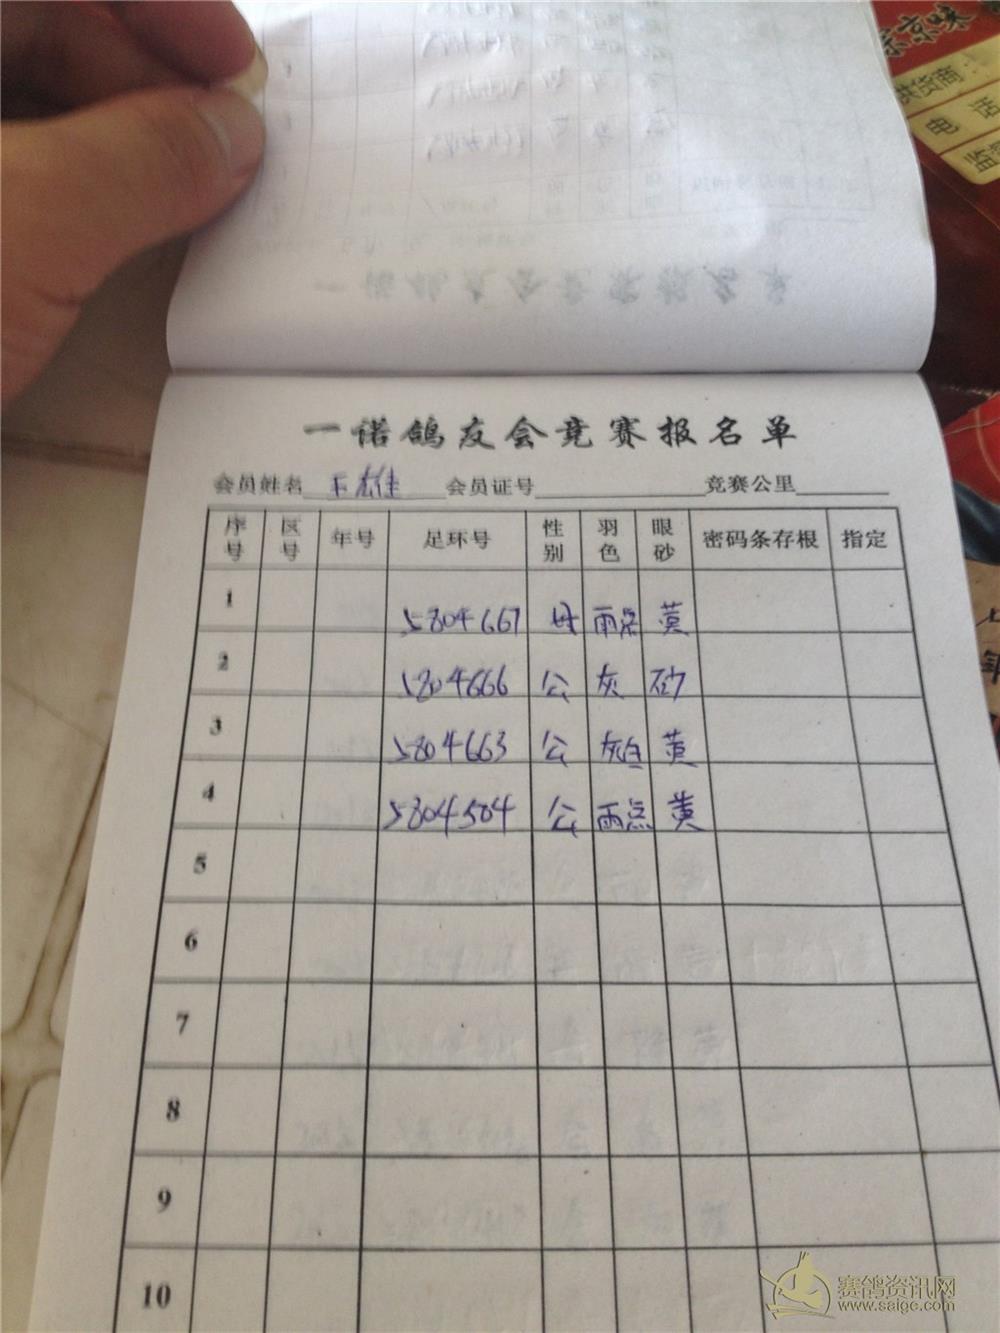 京味
供货商
电 话
一诺鸽友会竞赛报名单
会员姓名 王雄 会员证号 竞赛公里
序号 区号 年号 足环号 性别 羽色 眼砂 密码条存根 指定
1 5804667 母 雨点 黄
2 5804666 公 灰 砂
3 5804663 公 灰白 黄
4 5804504 公 雨点 黄
5
6
7
8
9
10
赛鸽资讯网
www.saige.com